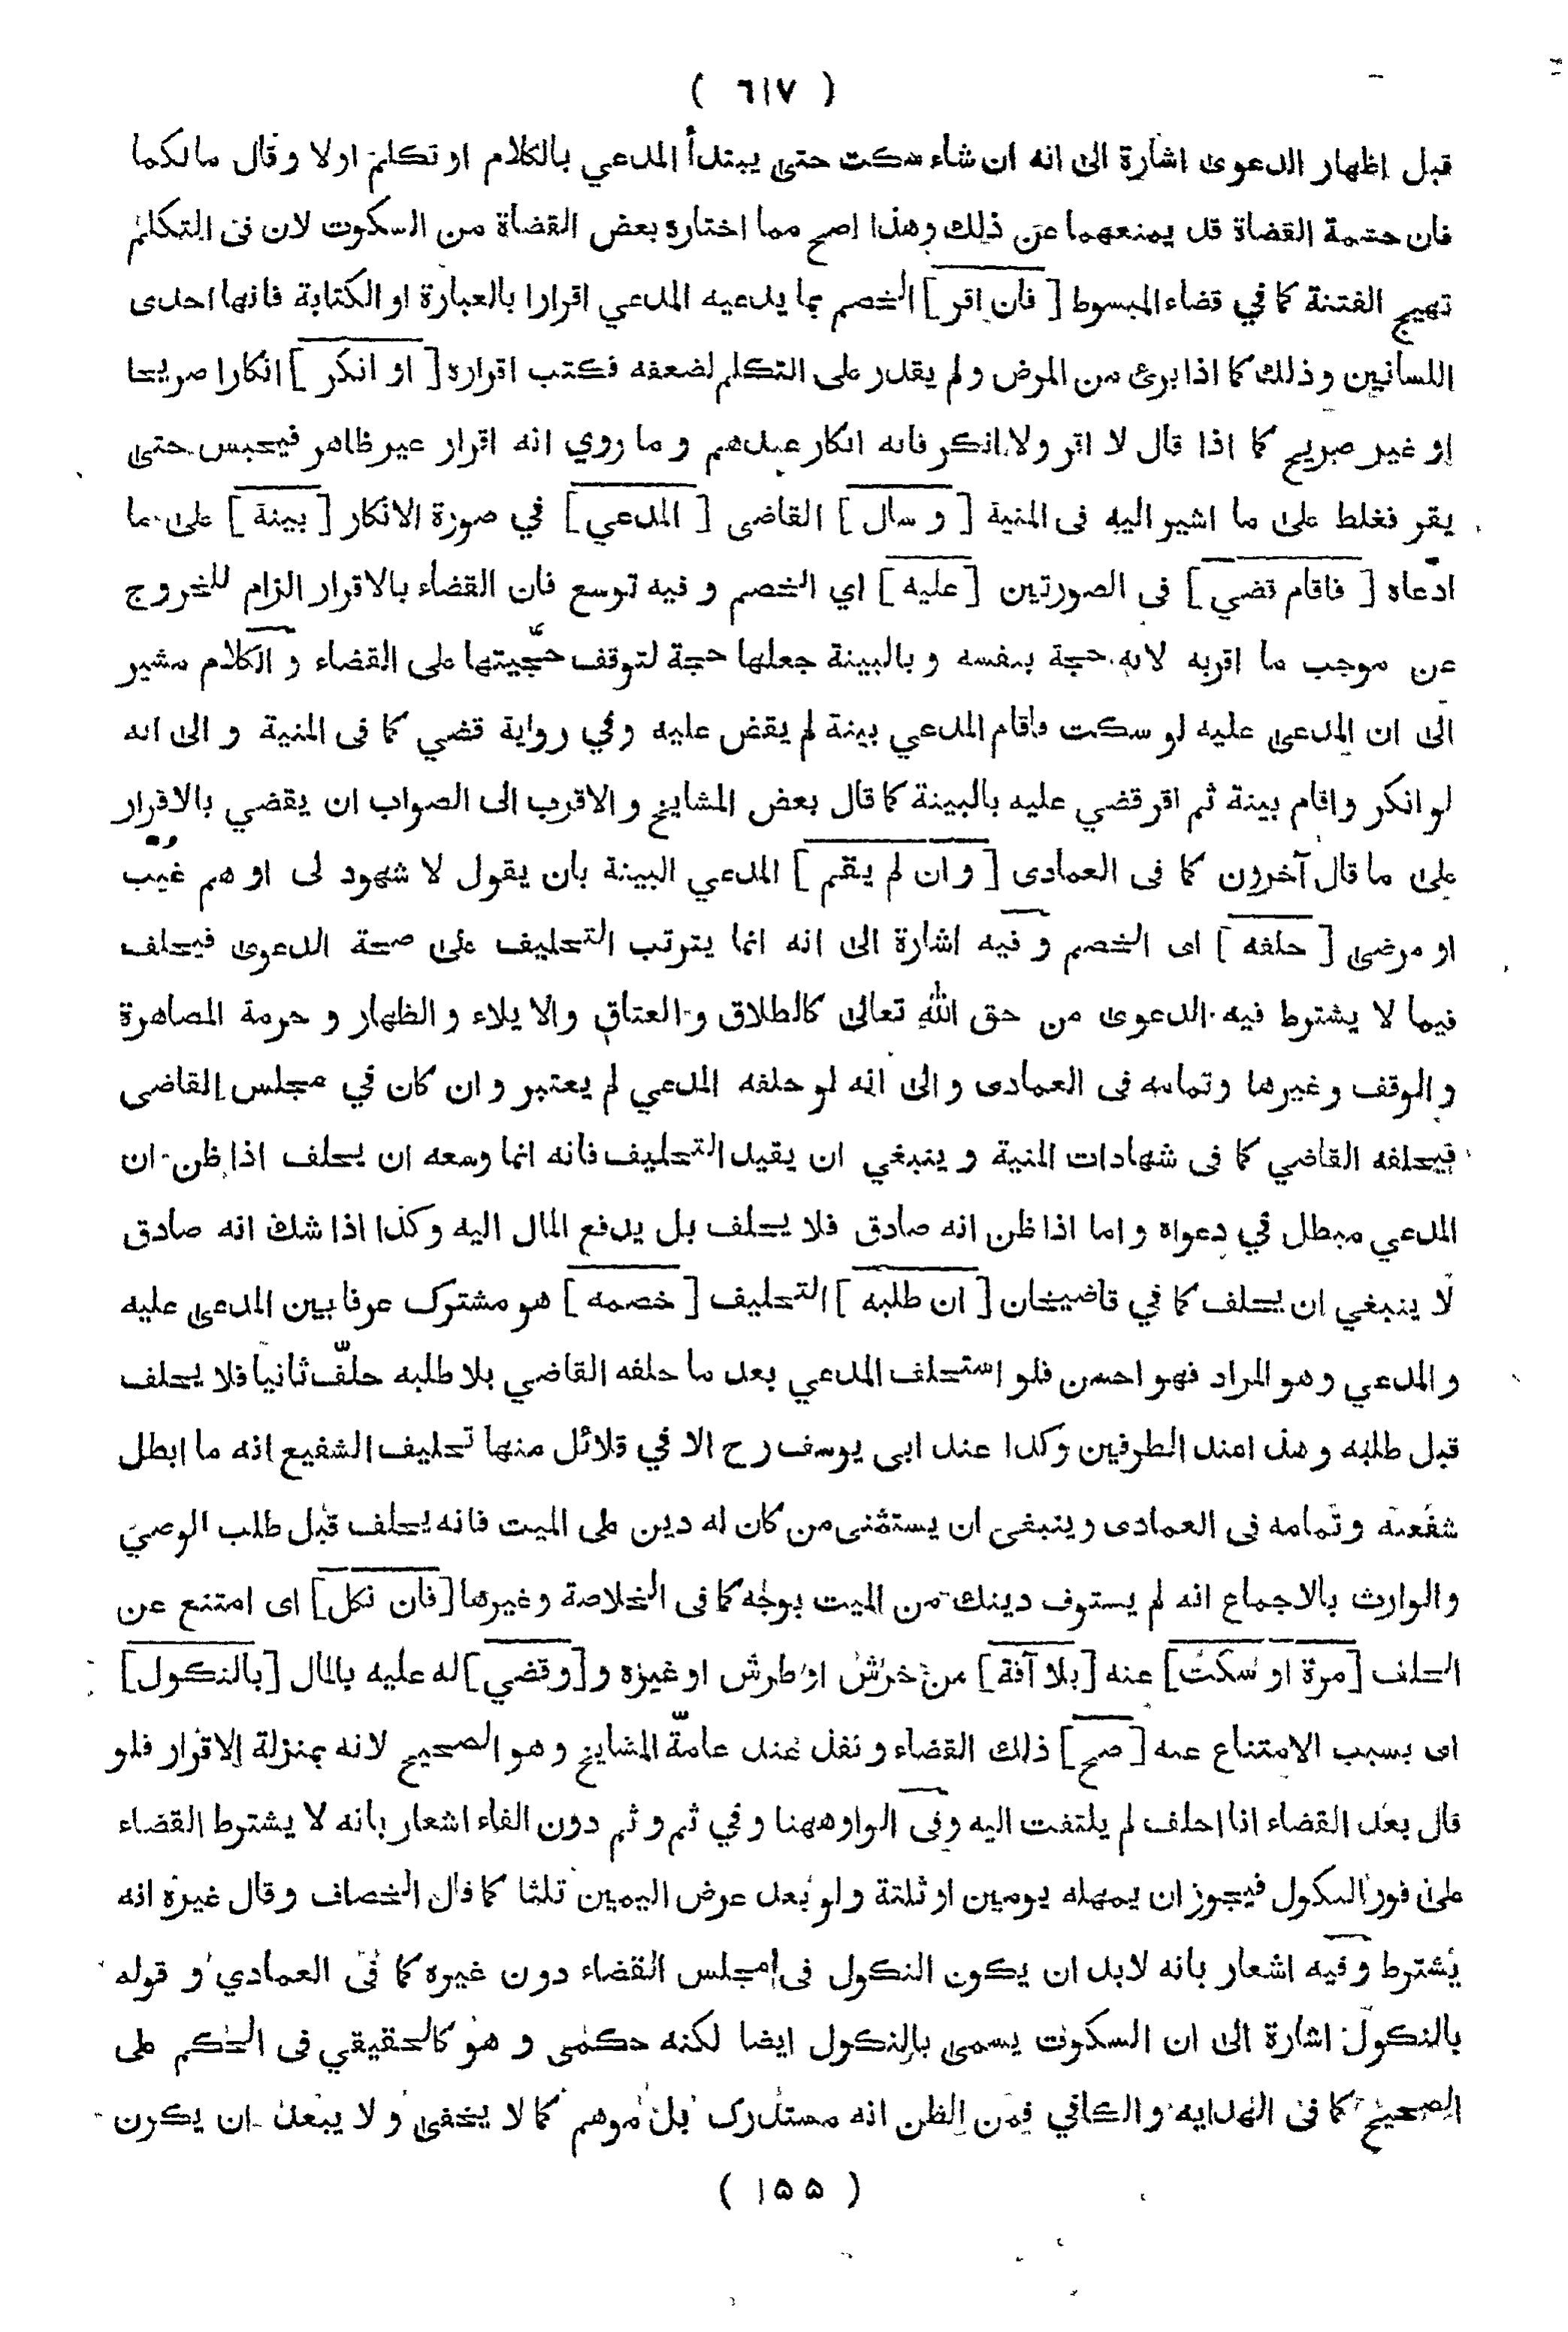 ( ٦١٧ )
قبل اظهار الدعوى اشارة الى انه ان شاء سكت حتى يبتدأ المدعي بالكلام او تكلم اولا وقال مالكما
فان حشمة القضاة قد يمنعهما عن ذلك وهذا اصح مما اختاره بعض القضاة من السكوت لان فى التكلم
تهييج الفتنة كما في قضاء المبسوط [ فان اقر ] الخصم بما يدعيه المدعي اقرارا بالعبارة او الكتابة فانها احدى
اللسانين وذلك كما اذا برئ من المرض ولم يقدر على التكلم لضعفه فكتب اقراره [ او انكر ] انكارا صريحا
او غير صريح كما اذا قال لا اقر ولا انكر فانه انكار عندهم وما روي انه اقرار غير ظاهر فيحبس حتى
يقر فغلط على ما اشير اليه فى المنية [ وسال ] القاضى [ المدعي ] في صورة الانكار [ بينة ] على ما
ادعاه [ فاقام قضي ] فى الصورتين [ عليه ] اي الخصم وفيه توسع فان القضاء بالاقرار الزام للخروج
عن موجب ما اقربه لانه حجة بنفسه وبالبينة جعلها حجة لتوقف حجّيتها على القضاء و الكلام مشير
الى ان المدعى عليه لو سكت فاقام المدعي بينة لم يقض عليه وفي رواية قضي كما فى المنية و الى انه
لو انكر واقام بينة ثم اقر قضي عليه بالبينة كما قال بعض المشايخ و الاقرب الى الصواب ان يقضي بالاقرار
على ما قال آخرون كما فى العمادى [ وان لم يقم ] المدعي البينة بان يقول لا شهود لى او هم غيب
او مرضى [ حلفه ] اى الخصم وفيه اشارة الى انه انما يترتب التحليف على صحة الدعوى فيحلف
فيما لا يشترط فيه الدعوى من حق الله تعالى كالطلاق و العتاق والايلاء و الظهار و حرمة المصاهرة
و الوقف وغيرها وتمامه فى العمادى و الى انه لو حلفه المدعي لم يعتبر وان كان في مجلس القاضى
فيحلفه القاضي كما فى شهادات المنية و ينبغي ان يقيد التحليف فانه انما وسعه ان يحلف اذا ظن ان
المدعي مبطل في دعواه و اما اذا ظن انه صادق فلا يحلف بل يدفع المال اليه وكذا اذا شك انه صادق
لا ينبغي ان يحلف كما في قاضيخان [ ان طلبه ] التحليف [ خصمه ] هو مشترك عرفا بين المدعى عليه
و المدعي وهو المراد فهو احسن فلو استحلف المدعي بعد ما حلفه القاضي بلا طلبه حلّف ثانيا فلا يحلف
قبل طلبه وهذا عند الطرفين وكذا عند ابى يوسف رح الا في قلائل منها تحليف الشفيع انه ما ابطل
شفعته وتمامه فى العمادى وينبغى ان يستثنى من كان له دين على الميت فانه يحلف قبل طلب الوصي
والوارث بالاجماع انه لم يستوف دينك من الميت بوجه كما فى الخلاصة وغيرها [فان نكل] اى امتنع عن
الحلف [مرة او سكت] عنه [بلا آفة] من خرش او طرش او غيره و [وقضي] له عليه بالمال [بالنكول]
اى بسبب الامتناع عنه [ صح ] ذلك القضاء ونفذ عند عامّة المشايخ وهو الصحيح لانه بمنزلة الاقرار فلو
قال بعد القضاء انا احلف لم يلتفت اليه وفى الواو ههنا وفي ثم و ثم دون الفاء اشعار بانه لا يشترط القضاء
على فور النكول فيجوز ان يمهله يومين او ثلثة ولو بعد عرض اليمين ثلثا كما قال الخصاف وقال غيره انه
يشترط وفيه اشعار بانه لابد ان يكون النكول فى مجلس القضاء دون غيره كما فى العمادي و قوله
بالنكول اشارة الى ان السكوت يسمى بالنكول ايضا لكنه حكمى و هو كالحقيقي فى الحكم على
الصحيح كما فى الهدايه والكافي فمن الظن انه مستدرك بل موهم كما لا يخفى و لا يبعد ان يكون
( ١٥٥ )